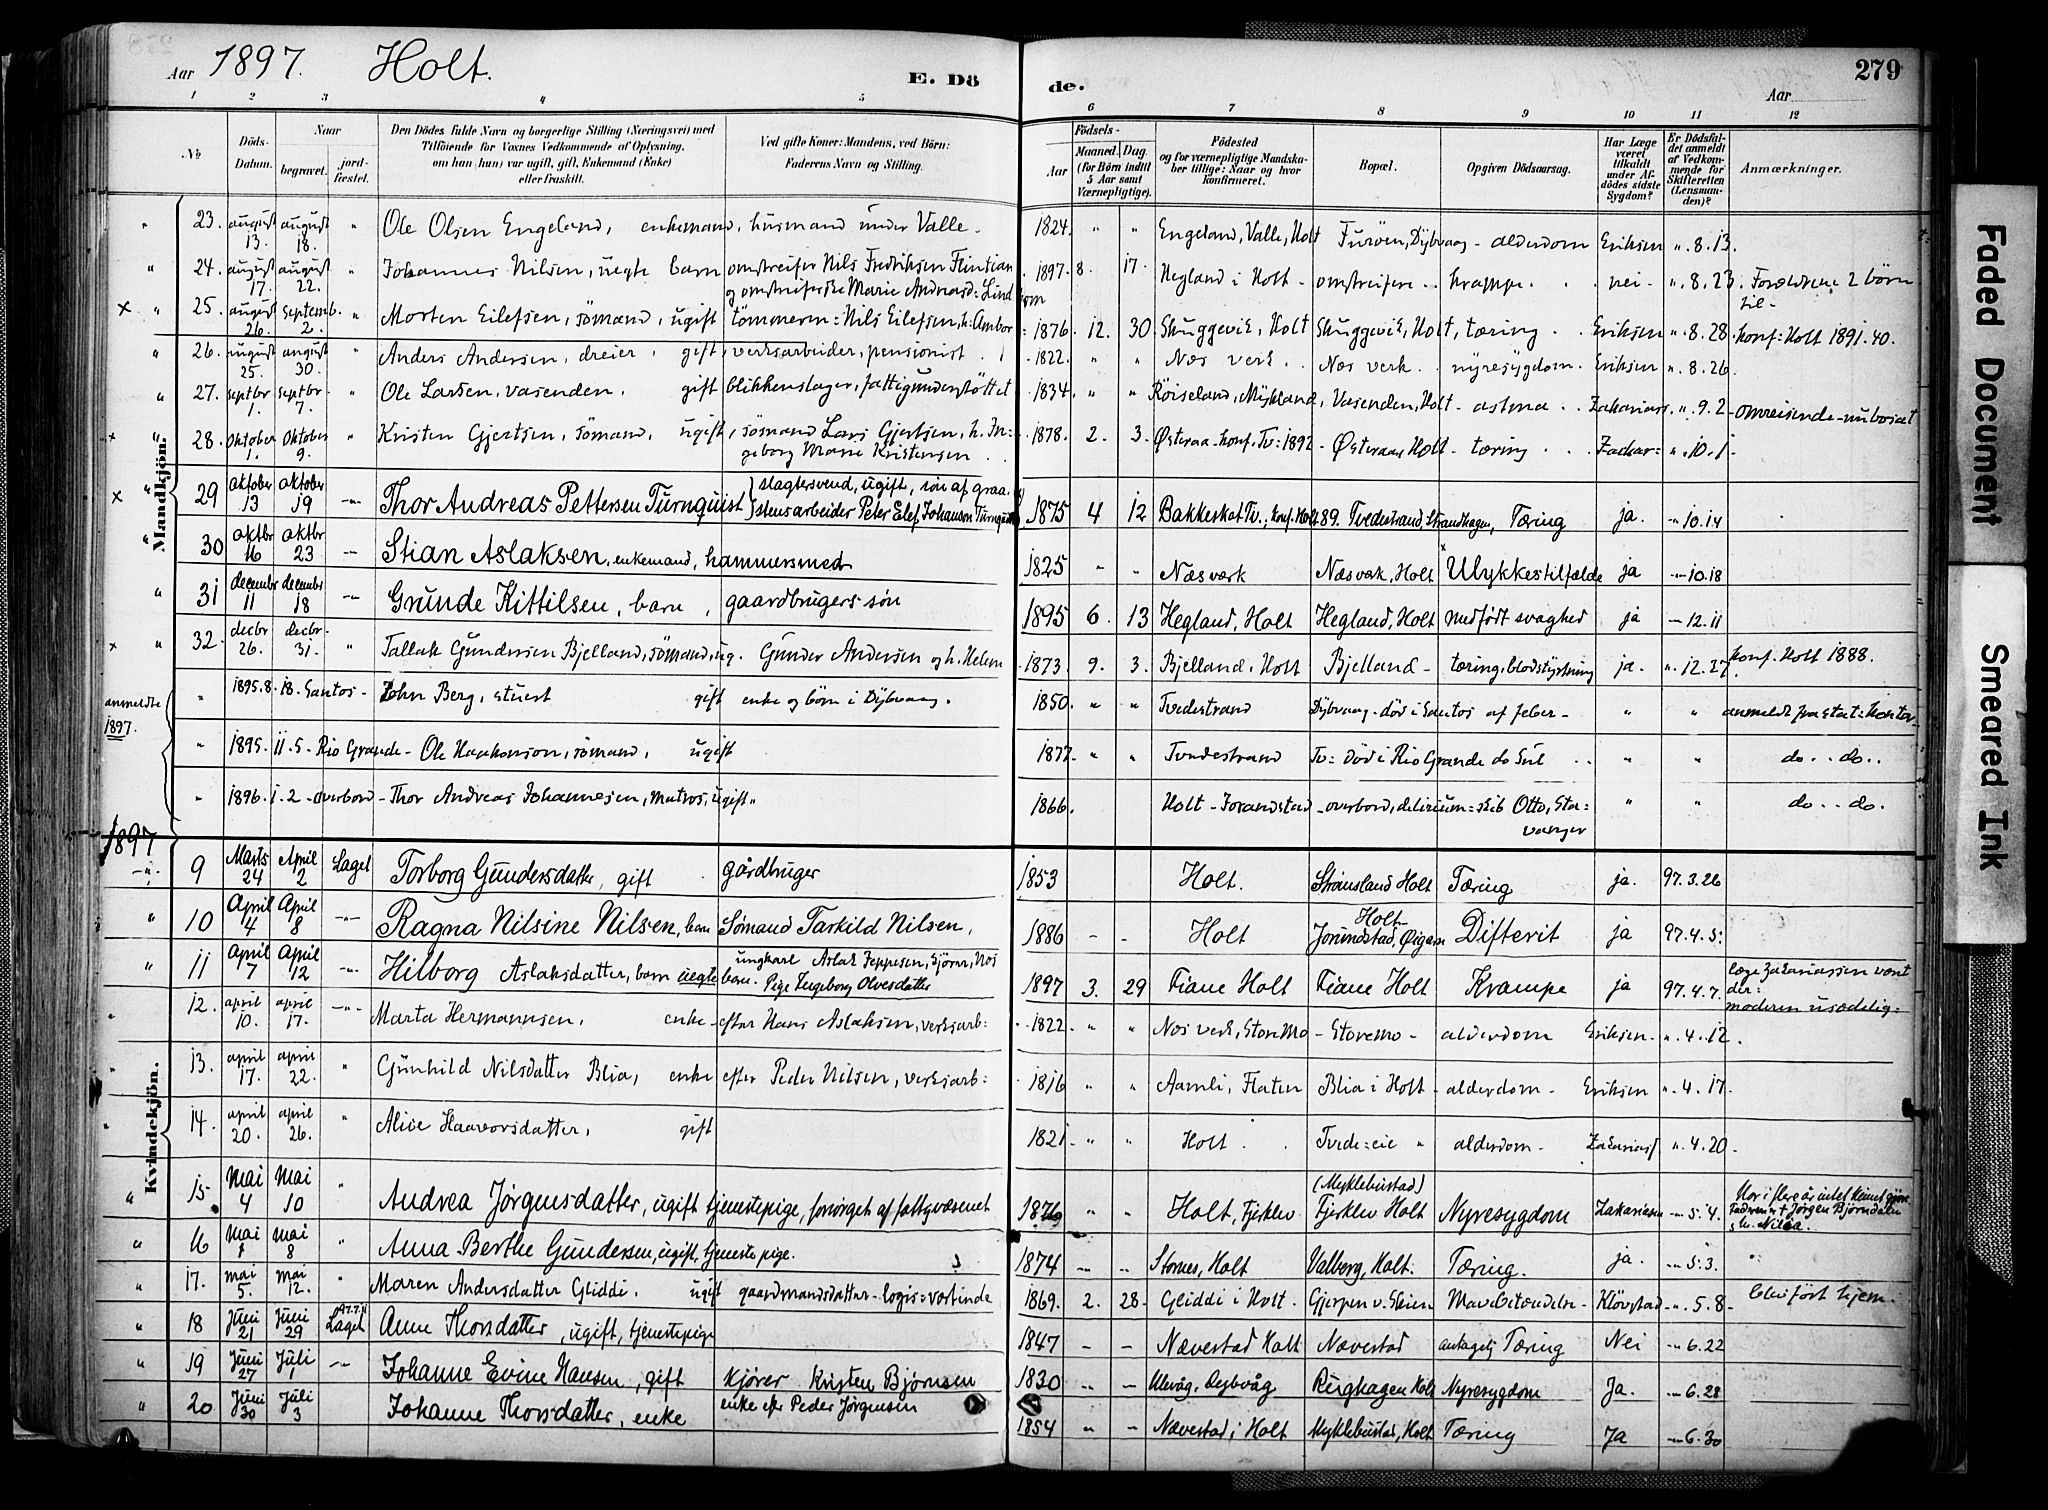 Aar 1897. Holt. E. Dö de. Aar 279
1 2 3 4 5 6 7 8 9 10 11 12
No
Döds-Datum.
Naar begravet. jordfæstet.
Den Dödes fulde Navn og borgerlige Stilling (Næringsvei) med Tilföiende for Voxnes Vedkommende af Oplysning, om han (hun) var ugift, gift, Enkemand (Enke) eller fraskilt.
Ved gifte Koner: Mandens, ved Börn: Faderens Navn og Stilling.
Födsels- Aar Maaned. Dag. (for Börn indtil 5 Aar samt Værnepligtige).
Födested og for værnepligtige Mandskaber tillige: Naar og hvor konfirmeret.
Bopæl.
Opgiven Dödsaarsag.
Har Læge været tilkaldt under Afdödes sidste Sygdom?
Er Dödsfaldet anmeldt af Vedkommende for Skifteretten (Lensmanden)?
Anmærkninger.
Mandkjön.
" 23. august 13. august 18. " Ole Olsen Engeland, enkemand, husmand under Valle - 1824. " " Engeland, Valle, Holt Furöen, Dybvaag - alderdom Eriksen ". 8. 13.
" 24. august 17. august 22. " Johannes Nilsen, uegte barn omstreifer Nils Fredriksen Flintian og omstreiferske Marie Andreasd: Lindtom 1897. 8. 17. Hegland i Holt - omstreifere - krampe. nei - ". 8. 23. Forældrene 2 börn til -
x " 25. august 26. septemb. 2. " Morten Eilefsen, sömand, ugift tömmerm = Nils Eilefsen, h: Ambor 1876. 12. 30. Skuggevik, Holt Skuggevik, Holt, tæring. Eriksen ". 8. 28. konf: Holt 1891. 40.
" 26. august 25. august 30. " Anders Andersen, dreier, gift, verksarbeider, pensionist. 1822. " " Næs verk. Næs verk. nyresygdom. Eriksen ". 8. 26.
" 27. septbr 1. septbr 7. " Ole Larsen, vasenden. gift blikkenslager, fattigunderstöttet 1834. " " Röiseland, Mykland, Vasenden, Holt - astma. Zakariass ". 9. 2 - omreisende - nu bosat
x " 28. oktober 1. oktober 9. " Kristen Gjertsen, sömand, ugift, sömand Lars Gjertsen, h. Ingeborg Marie Kristensen. 1878. 2. 3. Østeraa - konf. Tv: 1892 - Østeraa Holt - tæring. Zachar= ". 10. 1.
x " 29 oktober 13 oktober 19 -"- Thor Andreas Pettersen Turnquist slagtersvend, ugift, søn af graastensarbeider Peter Elef Johanson Turnquist 1875 4 12 Bakkeskot Tv., konf. Holt 89. Tvedestrand, Strandhagen, Tæring ja. -"- 10. 14
" 30 oktbr 16 oktbr 23 -"- Stian Aslaksen, enkemand, hammersmed 1825 - - Næsværk Næsværk, Holt Ulykkestilfælde ja -"- 10. 18
" 31 decembr 11 decembr 18 -"- Grunde Kittilsen, barn, gaardbrugers søn 1895 6. 13 Hegland, Holt Hegland, Holt medfødt svaghed ja - 12. 11
x " 32. decbr 26. decbr. 31. " Tallak Gundersen Bjelland, sömand, ug. Gunder Andersen og h. Helene 1873. 9. 3. Bjelland, Holt Bjelland - tæring, blodstyrtning ja. ". 12. 27 konf. Holt 1888.
anmeldte 1897.
" 1895. 8. 18. Santos - John Berg, stuert gift enke og börn i Dybvaag. 1850. " " Tvedestrand Dybvaag - död i Santos af feber - " " anmeldt fra stat = kontor.
" 1895. 11. 5. Rio Grande - Ole Haakonson, sömand, ugift 1877. " " Tvedestrand Tv: död i Rio Grande do Sul " " do.. do..
" 1896. 1. 2 - overbord - Thor Andreas Johannesen, matros, ugift " 1866. Holt - Jorandstad - overbord, delirium = skib Otto, Stavanger " " do... do.
1897
Kvindekjön.
-"- 9 Marts 24 April 2 Laget Torborg Gundersdatter, gift gårdbruger 1853 Holt. Strømsland Holt Tæring ja. 97. 3. 26
" 10 April 4 April 8 -"- Ragna Nilsine Nilsen, barn Sømand Tarkild Nilsen, 1886 - - Holt Holt - Jorundstad, Difterit ja 97. 4. 5.
" 11 April 7 April 12 -"- Hilborg Aslaksdatter, barn uegte ungkarl Aslak Jeppesen, Næs barn. Pige Ingeborg Olvesdatter 1897 3. 29 Fiane Holt Fiane Holt Krampe ja 97. 4. 7. læge Zakariassen moderen usædelig =
" 12. april 10. april 17. -"- Marta Hermannsen, enke - efter Hans Aslaksen, verksarb = 1822. " " Næs verk, Store Mo - Storemo - alderdom Eriksen - ". 4. 12.
" 13. april 17. april 22. " Gunhild Nilsdatter Blia, enke efter Peder Nilsen, verksarb = 1816 " " Aamli, Flaten Blia i Holt - alderdom - Eriksen ". 4. 17.
" 14. april 20. april 26. " Alice Haavorsdatter, gift 1821 - " " Holt. Tvede = eie " alderdom - Zakariass ". 4. 20.
" 15. Mai 4 Mai 10 " Andrea Jørgensdatter, ugift tjenestepige, forsørget af fattigvæsenet 1876 " " Holt, Fjerklev (Myklebustad) Fjerklev Holt Nyresygdom Zakariasen - 5. 4. Mor i flere år Faderen + Jørgen Bjørndalen
" 16 Mai 1 Mai 8 " Anna Berthe Gundersen, ugift, tjenestepige. 1874 - - Stornes, Holt Valberg, Holt. Tæring. ja. -"- 5. 3.
" 17. mai 5. mai 12. " Maren Andersdatter Gliddi, ugift gaardmandsdatter - logis = vertinde 1869. 2. 28 - Gliddi i Holt. Gjerpen v. Skien Klövstad - ". 5. 8. blev fört hjem.
" 18 Juni 21 Juni 29 97. 7. 11 Laget Anne Thorsdatter, ugift, tjenestepige 1847 - - Nævestad Holt Nævestad antagelg Tæring Nei -"- 6. 22
" 19 Juni 27 Juli 1 -"- Johanne Evine Hansen, gift Kjører Kristen Bjørnsen 1830 - - Ulevåg, Dybvåg Rughagen Holt Nyresygdom Ja. -"- 6. 28
" 20 Juni 30 Juli 3 Johanne Thorsdatter, enke enke efter Peder Jörgensen 1854 " - Nævestad i Holt Myklebustad, Holt Tæring Ja -"- 6. 30
Faded Document
Smeared Ink